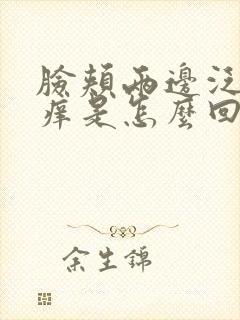 臉頰兩邊泛
痒是怎麼回
余生錦